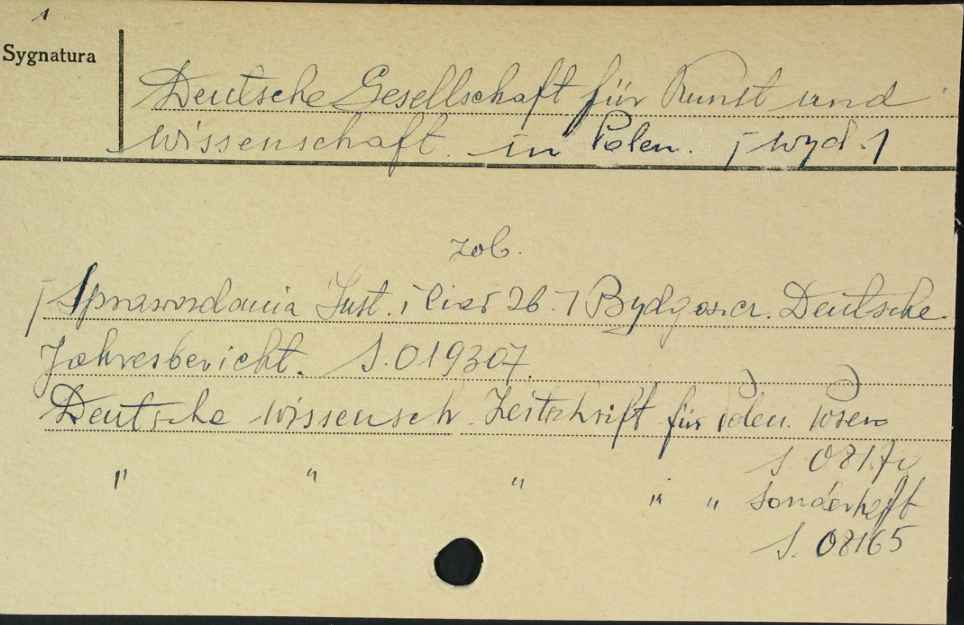 1
Sygnatura
Deutsche Gesellschaft für Kunst und
Wissenschaft. in Polen. [wyd.]
zob.
[Sprawozdania Inst. i 26.] Bydgoszcz. Deutsche
Jahresbericht. S.019307.
Deutsche wissensch. Zeitschrift für Polen. Posen
S 0817
" " " " " Sonderheft
S. 08165